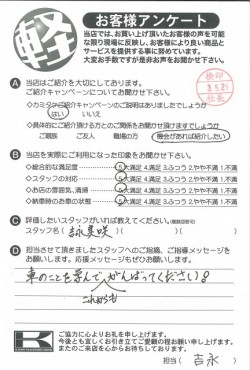 軽
お客様アンケート
当店では、お買い上げ頂いたお客様の声を可能な
限り現場に反映し、お客様により良い商品と
サービスを提供する事に努めています。
大変お手数ですが是非お声をお聞かせ下さい。
検印
3.5.21
社長
A 当店はご紹介を大切にしております。
ご紹介キャンペーンについてお聞かせ下さい。
はい いいえ
ご親戚 ご友人 職場の方 機会があれば紹介したい
B 当店を実際にご利用になった印象をお聞かせ下さい。
◇総合的な満足度 5.大満足 4.満足 3.ふつう 2.やや不満 1.不満
◇スタッフの対応 5.大満足 4.満足 3.ふつう 2.やや不満 1.不満
◇お店の雰囲気、清掃 5.大満足 4.満足 3.ふつう 2.やや不満 1.不満
◇納車時のお車の状態 5.大満足 4.満足 3.ふつう 2.やや不満 1.不満
C 評価したいスタッフがいれば教えてください。(複数回答可)
スタッフ名( )
D 担当させて頂きましたスタッフへのご指摘、ご指導メッセージを
お願いします。応援メッセージもぜひお願いします。
車のことを学んでがんばってください!!
これからも
K
ご協力に心よりお礼を申し上げます。
今後とも宜しくお引き立てご愛顧の程お願い申し上げます。
またのご来店を心からお待ちしております。
担当( 吉永 )